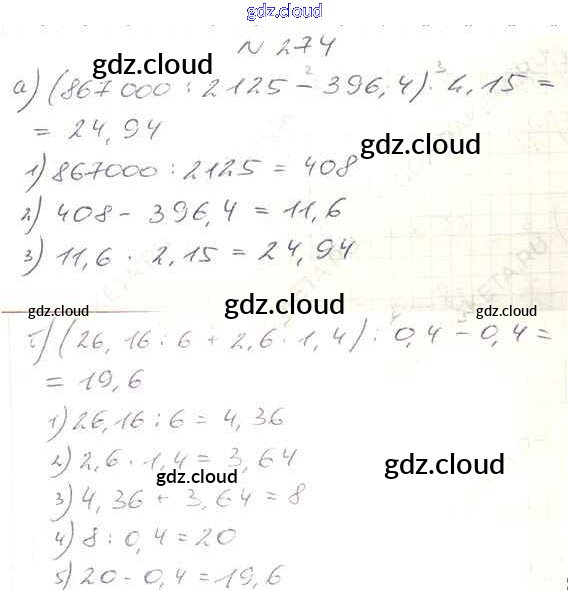 gdz.cloud
N 274
gdz.cloud
а) (867000 : 2125 - 396,4) · 2,15 =
= 24,94
gdz.cloud
1) 867000 : 2125 = 408
2) 408 - 396,4 = 11,6
3) 11,6 · 2,15 = 24,94
gdz.cloud gdz.cloud gdz.cloud
б) (26,16 : 6 + 2,6 · 1,4) : 0,4 - 0,4 =
= 19,6
1) 26,16 : 6 = 4,36
2) 2,6 · 1,4 = 3,64
gdz.cloud gdz.cloud
3) 4,36 + 3,64 = 8
4) 8 : 0,4 = 20
5) 20 - 0,4 = 19,6